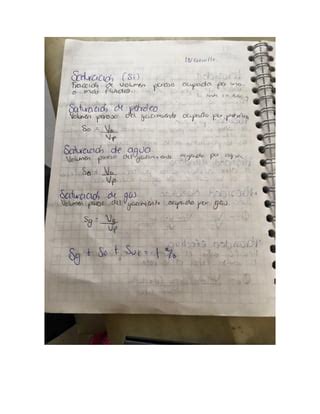 Saturación (Si)
Fracción de volumen poroso ocupado por uno
o mas fluidos.
Saturación de petróleo
Volumen poroso del yacimiento ocupado por petróleo
So = Vo
Vp
Saturación de agua
Volumen poroso del yacimiento ocupado por agua
Vp
Saturación de gas
Volumen poroso del yacimiento ocupado por gas
Sg = Vg
Vp
Sg + So + Sw = 1 %